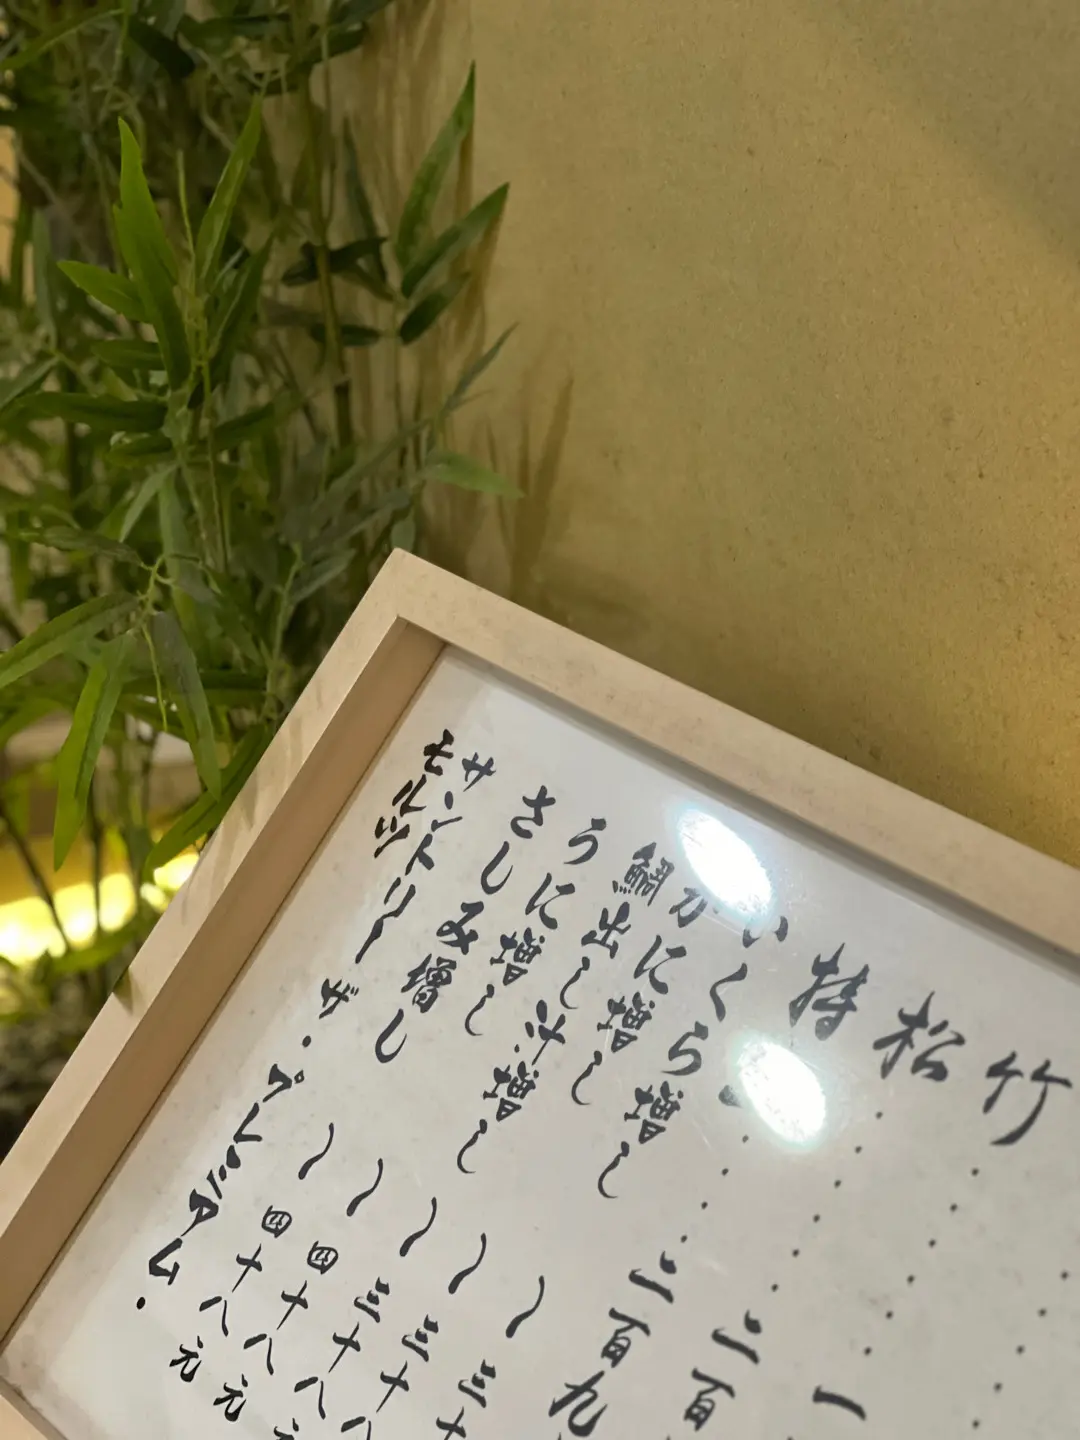 竹・・・・・・一
松・・・・・・二百
特・・・・二百九
いくら増し〜三十
かに増し〜三十八
鯛出し汁増し〜三十八元
うに増し〜四十八元
さしみ増し〜四十八元
サントリー ザ・プレミアム・
モルツ